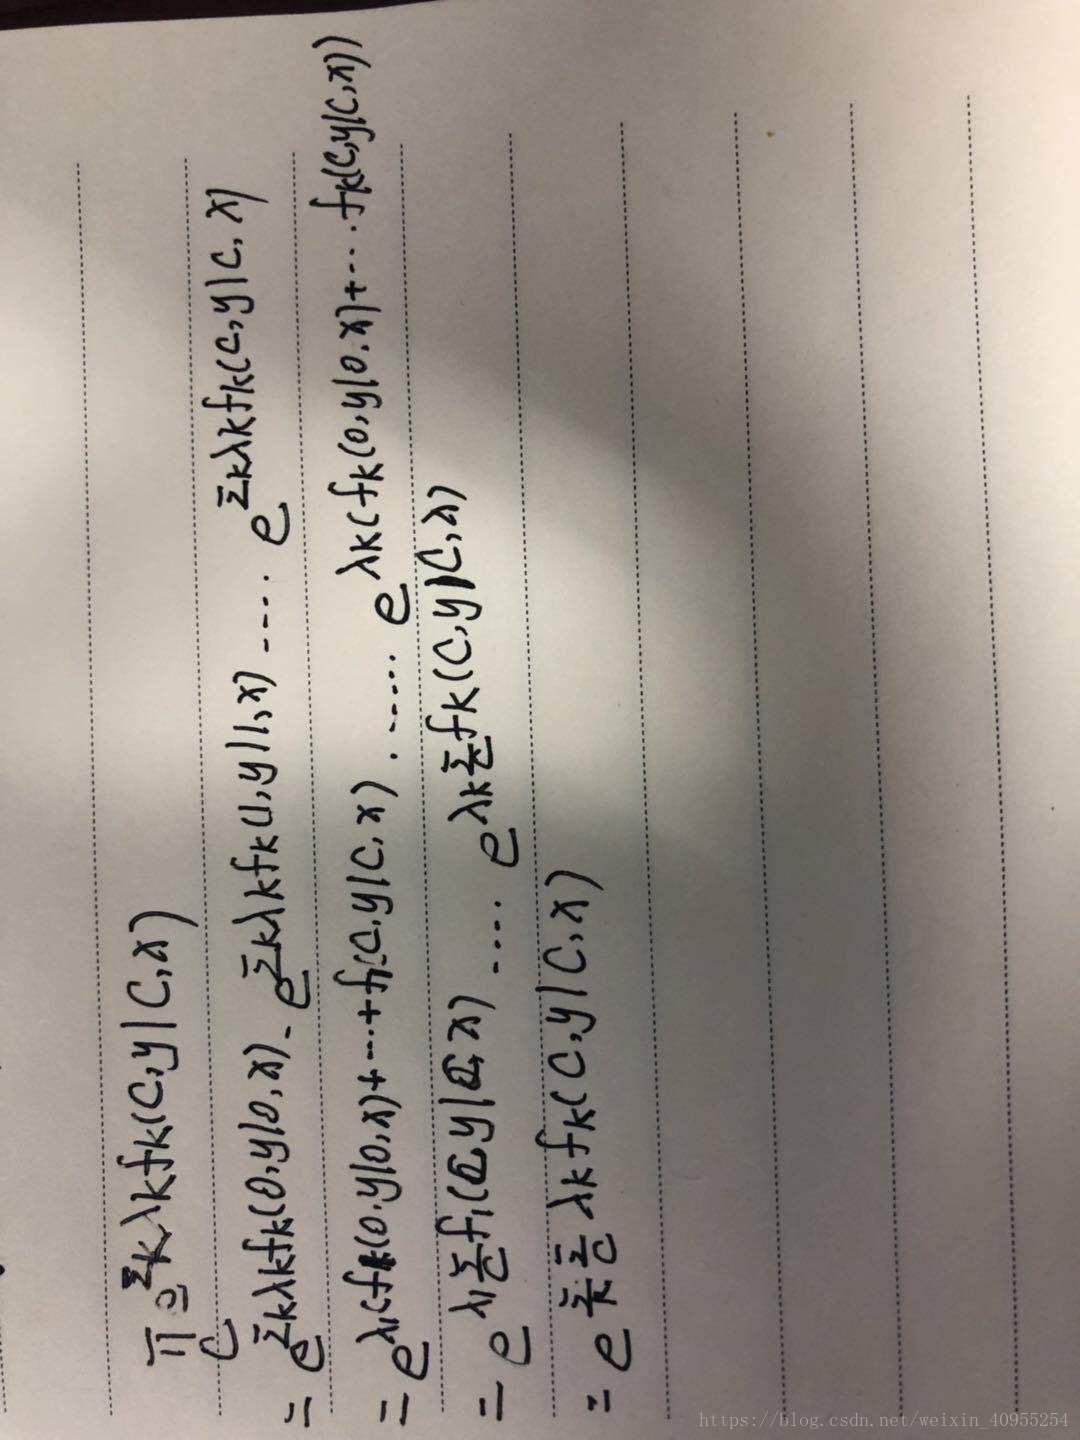 ∏_c e^{Σ_k λ_k f_k(c,y|c,x)}
= e^{Σ_k λ_k f_k(0,y|0,x)} · e^{Σ_k λ_k f_k(1,y|1,x)} ···· e^{Σ_k λ_k f_k(c,y|c,x)}
= e^{λ_1(f_k(0,y|0,x)+···+f_1(c,y|c,x)} ······ e^{λ_k(f_k(0,y|0,x)+···f_k(c,y|c,x))}
= e^{λ_1 Σ_c f_1(c,y|c,x)} ···· e^{λ_k Σ_c f_k(c,y|c,x)}
= e^{Σ_k Σ_c λ_k f_k(c,y|c,x)}
https://blog.csdn.net/weixin_40955254